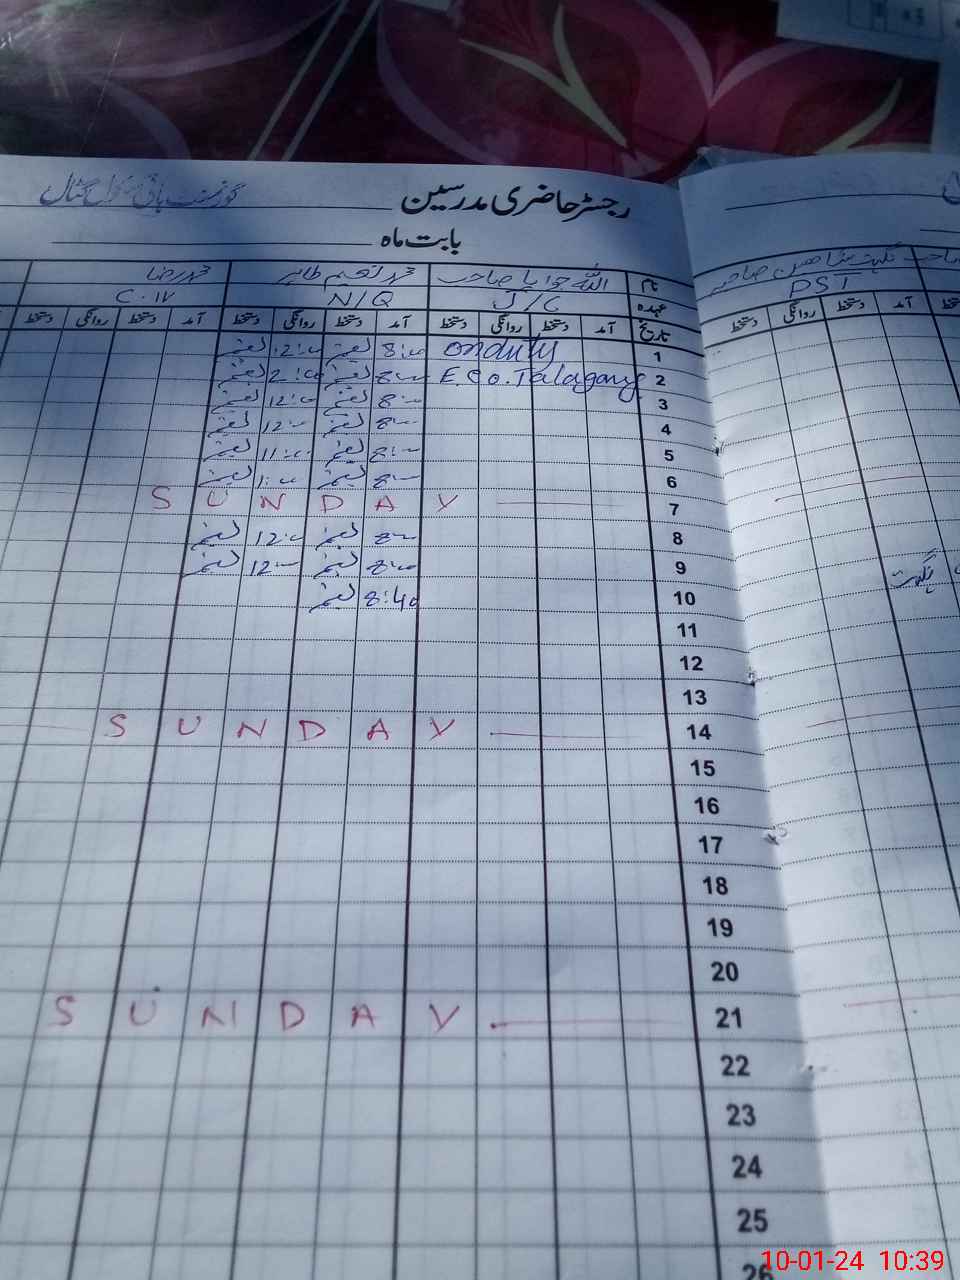 رجسٹر حاضری مدرسین
گورنمنٹ ہائی
بابت ماہ
نام اللہ جوایا صاحب محمد نعیم طاہر محمد رضا
عہدہ J/C N/Q C.IV
PST
تاریخ آمد دستخط روانگی دستخط آمد دستخط روانگی دستخط آمد دستخط روانگی دستخط
دستخط روانگی دستخط آمد
1 onduty 8:00 نعیم 12:00 نعیم
2 E.C.O. Talagang 8:00 نعیم 2:00 نعیم
3 8:00 نعیم 12:00 نعیم
4 8:00 نعیم 12:00 نعیم
5 8:00 نعیم 11:00 نعیم
6 8:00 نعیم 1:00 نعیم
7 SUNDAY
8 8:00 نعیم 12:00 نعیم
9 8:00 نعیم 12:00 نعیم
نگہت
10 8:40 نعیم
11
12
13
14 SUNDAY
15
16
17
18
19
20
21 SUNDAY
22
23
24
25
26
10-01-24 10:39